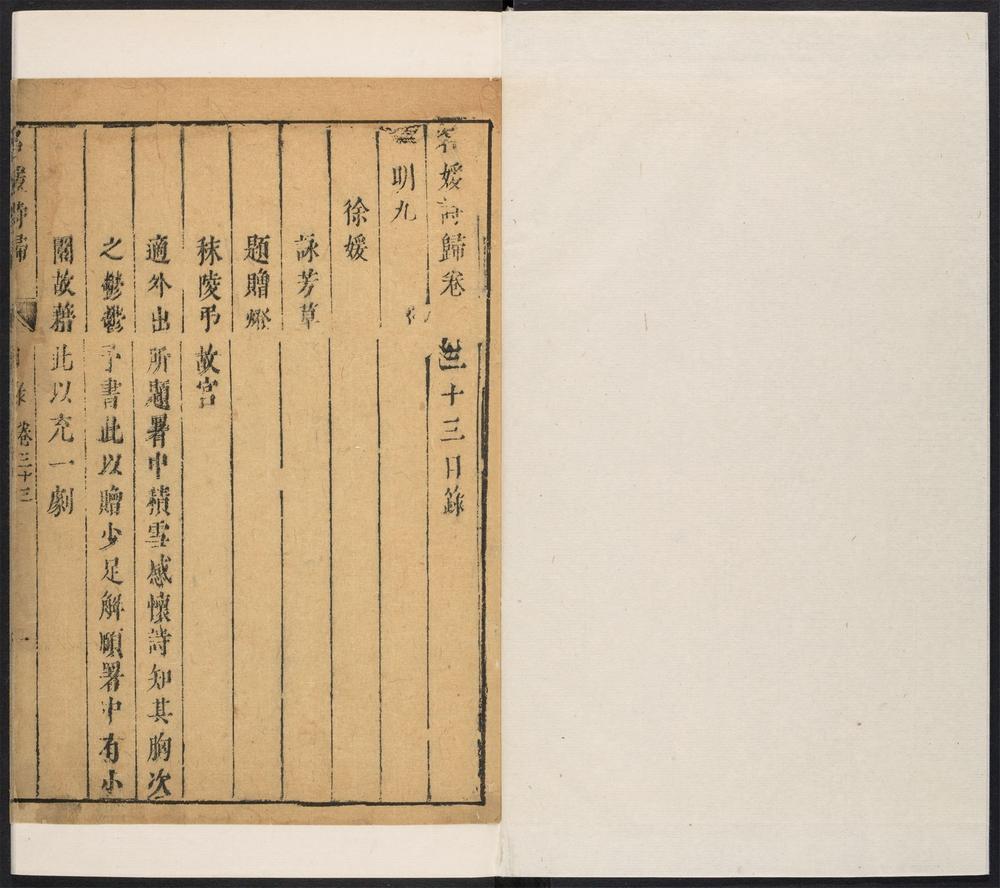 名媛詩歸卷三十三目錄
明九
徐媛
詠芳草
題贈燈
秣陵弔故宮
適外出所題署中積雪感懷詩知其胸次
之鬱鬱予書此以贈少足解頤署中有小
關故藉此以充一劇
名媛詩歸 目錄 卷三十三 一